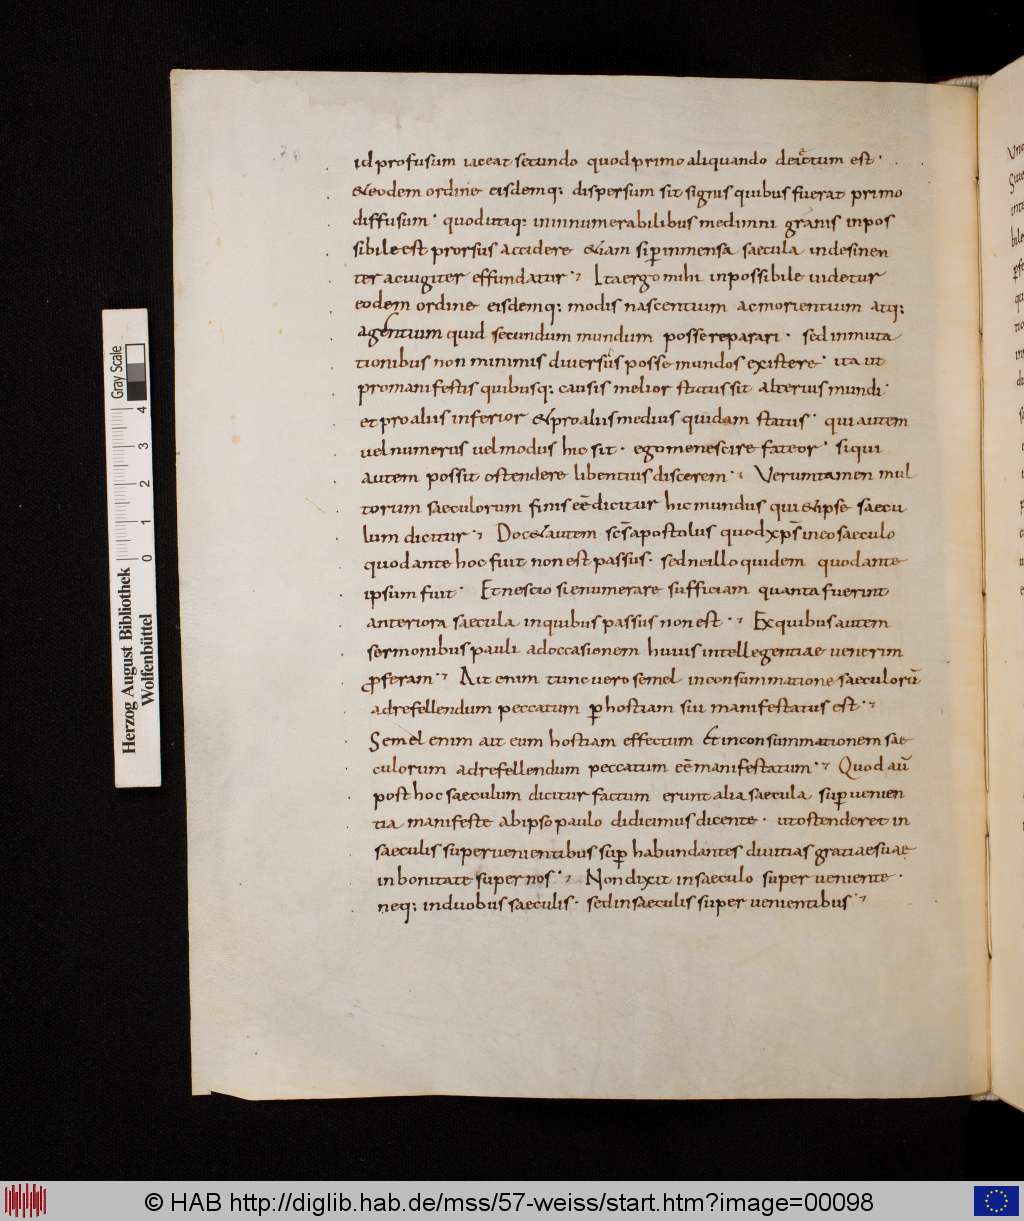 id profusum iaceat secundo quod primo aliquando deiectum est·
& eodem ordine eisdemq; dispersum sit signis quibus fuerat primo
diffusum· quod utiq; in innumerabilibus medimni granis inpos
sibile est prorsus accidere &iam si p̄ inmensa saecula indesinen
ter ac iugiter effundatur·, Ita ergo mihi inpossibile uidetur
eodem ordine eisdemq; modis nascentium ac morientium atq;
agentium quid secundum mundum posse reparari· sed inmuta
tionibus non minimis diuersus posse mundos existere· ita ut
pro manifestis quibusq; causis melior status sit alterius mundi·
et pro aliis inferior & pro aliis medius quidam status· qui autem
uel numerus uel modus hic sit· ego me nescire fateor· si qui
autem possit ostendere libentius discerem·, Verumtamen mul
torum saeculorum finis eē dicitur hic mundus qui & ipse saecu
lum dicitur·, Doc& autem scs̄ apostolus quod xps̄ in eo saeculo
quod ante hoc fuit non est passus· sed ne illo quidem quod ante
ipsum fuit· Et nescio si enumerare sufficiam quanta fuerint
anteriora saecula in quibus passus non est·, Ex quibus autem
sermonibus pauli ad occasionem huius intellegentiae uenerim
ꝓferam·, Ait enim tunc uero semel in consummatione saeculorū
ad refellendum peccatum p̄ hostiam sui manifestatus est·,
Semel enim ait eum hostiam effectum Et in consummationem sae
culorum ad refellendum peccatum eē manifestatum·, Quod aū
post hoc saeculum dicitur factum erunt alia saecula sup̄ uenien
tia manifeste ab ipso paulo didicimus dicente· ut ostenderet in
saeculis superuenientibus sup̄ habundantes diuitias gratiae suae
in bonitate super nos·, Non dixit in saeculo super ueniente·
neq; in duobus saeculis· sed in saeculis super uenientibus·,
Gray Scale
0 1 2 3 4
Herzog August Bibliothek
Wolfenbüttel
© HAB http://diglib.hab.de/mss/57-weiss/start.htm?image=00098